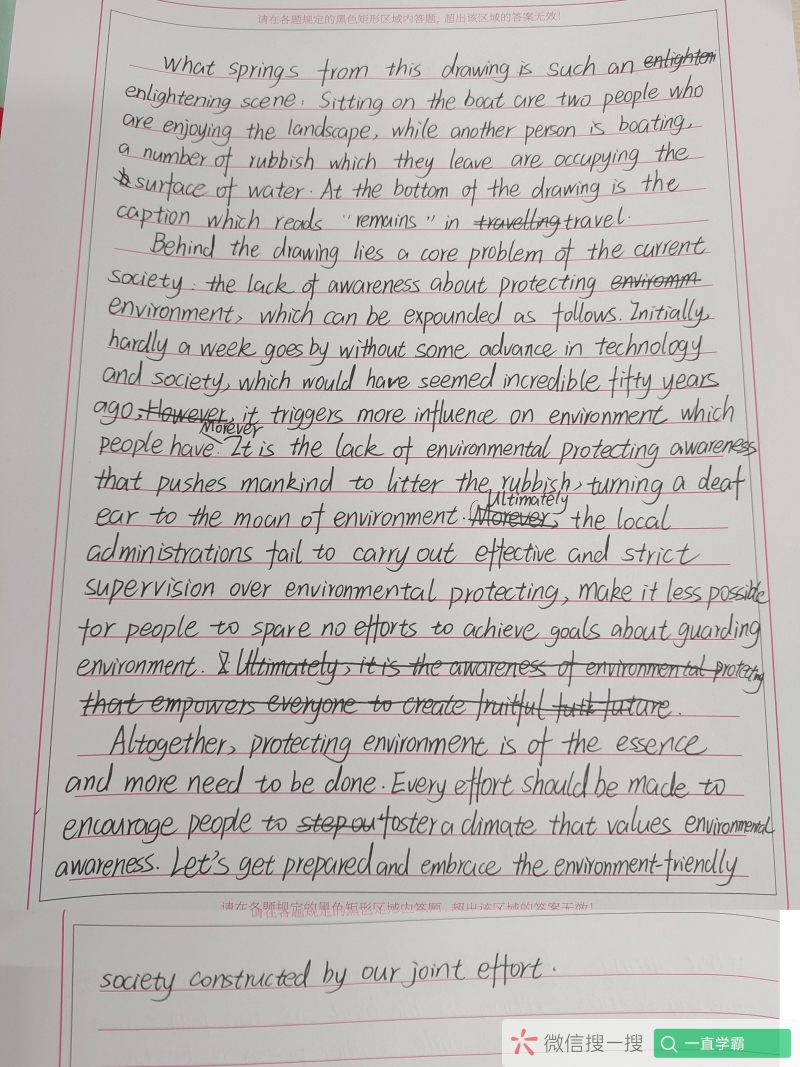 请在各题规定的黑色矩形区域内答题，超出该区域的答案无效！
What springs from this drawing is such an enlighten
enlightening scene: Sitting on the boat are two people who
are enjoying the landscape, while another person is boating,
a number of rubbish which they leave are occupying the
surface of water. At the bottom of the drawing is the
caption which reads "remains" in travelling travel.
Behind the drawing lies a core problem of the current
society: the lack of awareness about protecting enviromm
environment, which can be expounded as follows. Initially,
hardly a week goes by without some advance in technology
and society, which would have seemed incredible fifty years
ago, However, it triggers more influence on environment which
Morever
people have. It is the lack of environmental protecting awareness
that pushes mankind to litter the rubbish, turning a deaf
Ultimately
ear to the moan of environment. Morever, the local
administrations fail to carry out effective and strict
supervision over environmental protecting, make it less possible
for people to spare no efforts to achieve goals about guarding
environment. Ultimately, it is the awareness of environmental protecting
that empowers everyone to create fruitful future.
Altogether, protecting environment is of the essence
and more need to be done. Every effort should be made to
encourage people to step out foster a climate that values environmental
awareness. Let's get prepared and embrace the environment-friendly
请在各题规定的黑色矩形区域内答题，超出该区域的答案无效！
请在各题规定的黑色矩形区域内答题，超出该区域的答案无效！
society constructed by our joint effort.
微信搜一搜 一直学霸